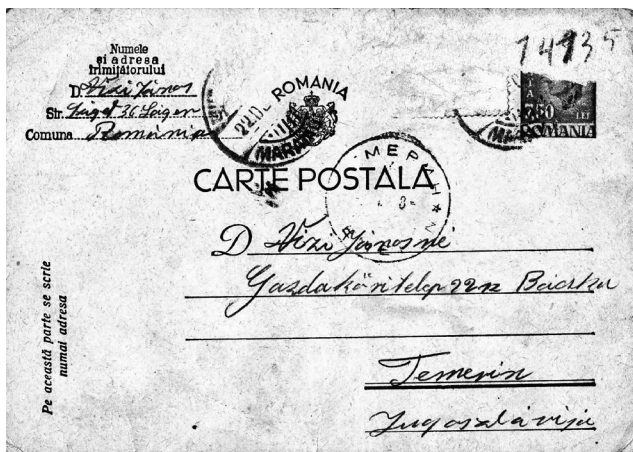 Numele
și adresa
trimițătorului
D. Vizi János
Str. Siget 36 Láger
Comuna România
ROMANIA
14935
7.50 LEI
ROMANIA
22.D
MARAM
CARTE POSTALĂ
ТЕМЕРИН
D Vizi Jánosné
Gazdakör telep 22 sz Bácska
Temerin
Jugoszlávija
Pe această parte se scrie
numai adresa